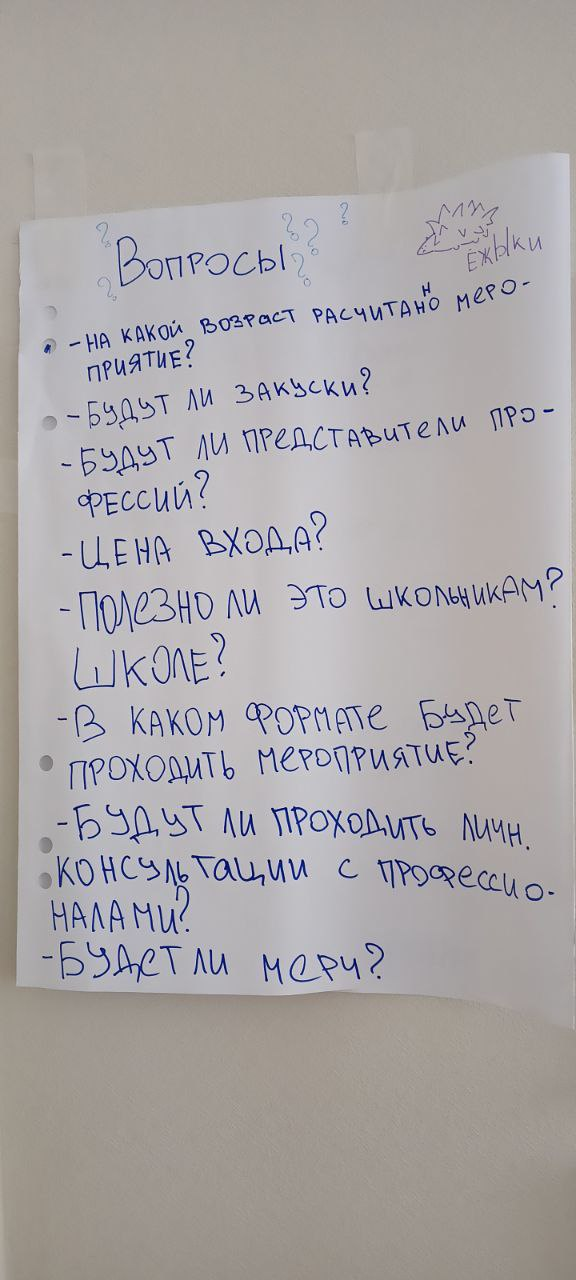 Вопросы
ЁЖЫКИ
- НА КАКОЙ ВОЗРАСТ РАСЧИТАННО МЕРО-
ПРИЯТИЕ?
- БУДУТ ЛИ ЗАКУСКИ?
- БУДУТ ЛИ ПРЕДСТАВИТЕЛИ ПРО-
ФЕССИЙ?
- ЦЕНА ВХОДА?
- ПОЛЕЗНО ЛИ ЭТО ШКОЛЬНИКАМ?
ШКОЛЕ?
- В КАКОМ ФОРМАТЕ БУДЕТ
ПРОХОДИТЬ МЕРОПРИЯТИЕ?
- БУДУТ ЛИ ПРОХОДИТЬ ЛИЧН.
КОНСУЛЬТАЦИИ С ПРОФЕССИО-
НАЛАМИ?
- БУДЕТ ЛИ МЕРЧ?